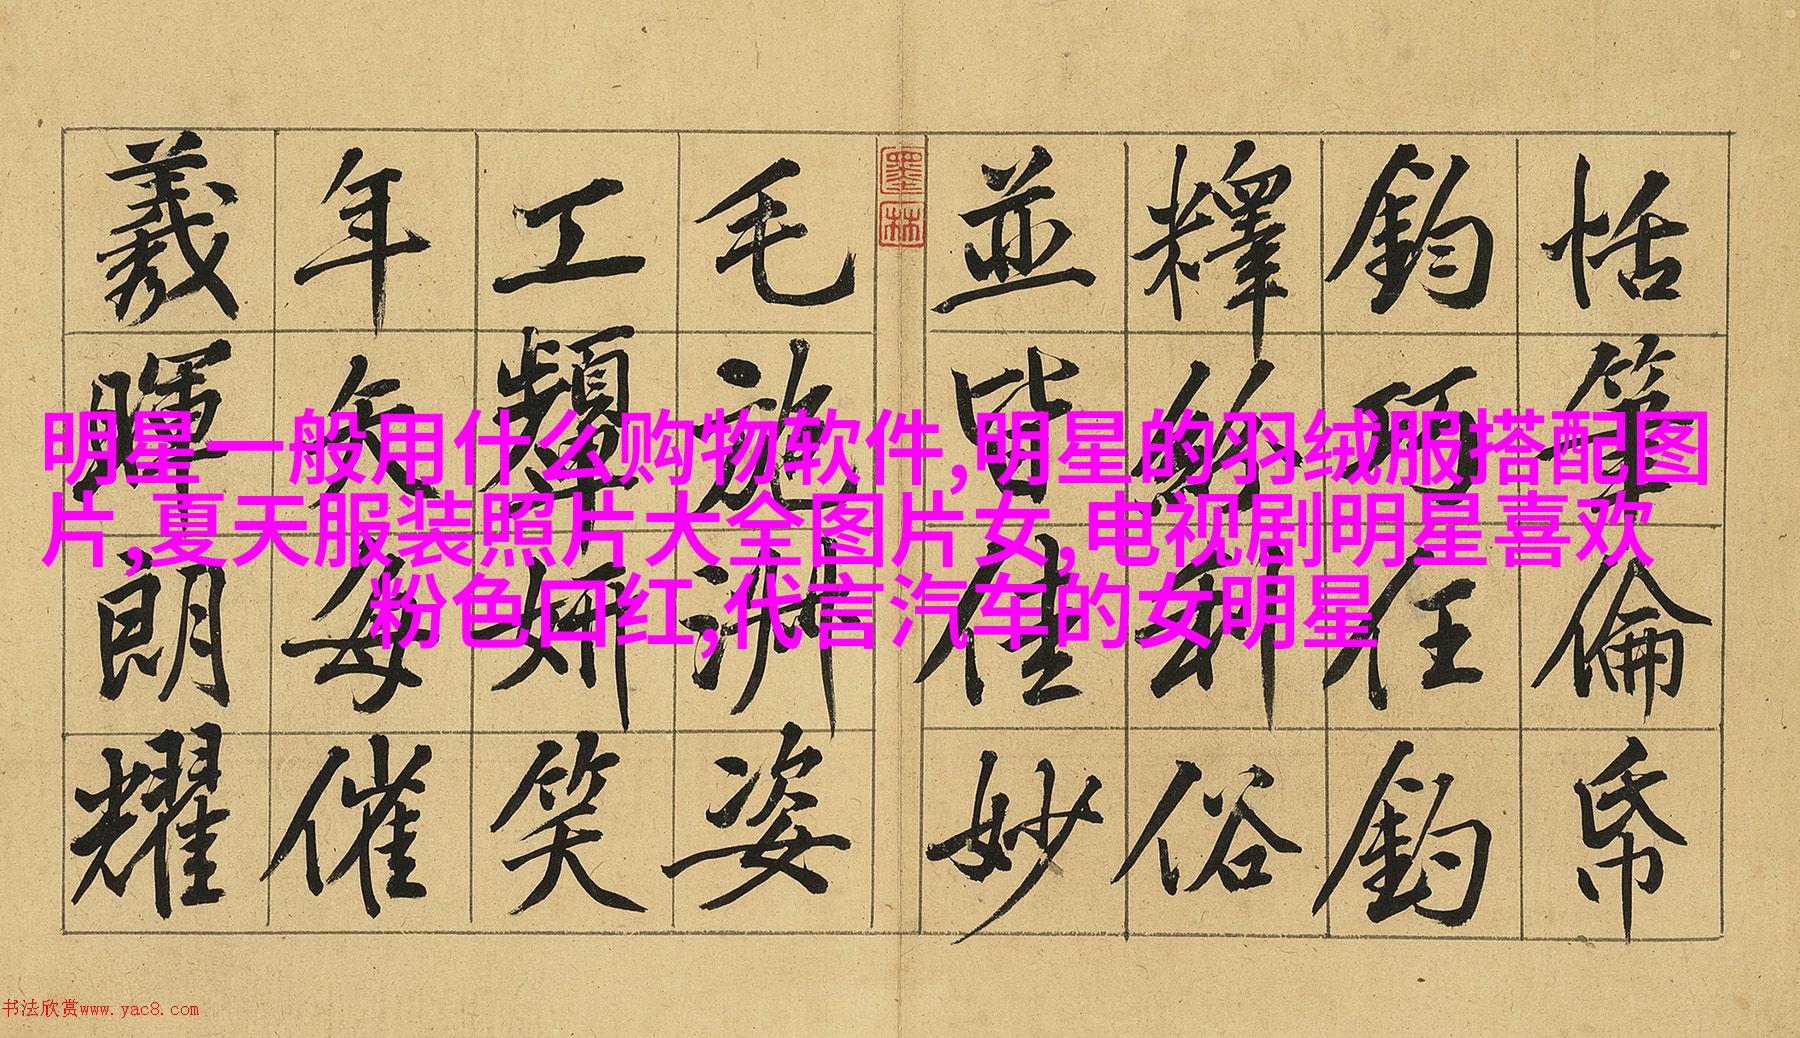 恬筆倫帋
鈞巧任釣
釋紛利俗
並皆佳妙
墨林
毛施淑姿
工顰妍笑
年矢每催
羲暉朗耀
明星一般用什么购物软件,明星的羽绒服搭配图
片,夏天服装照片大全图片女,电视剧明星喜欢
粉色口红,代言汽车的女明星
书法欣赏www.yac8.com